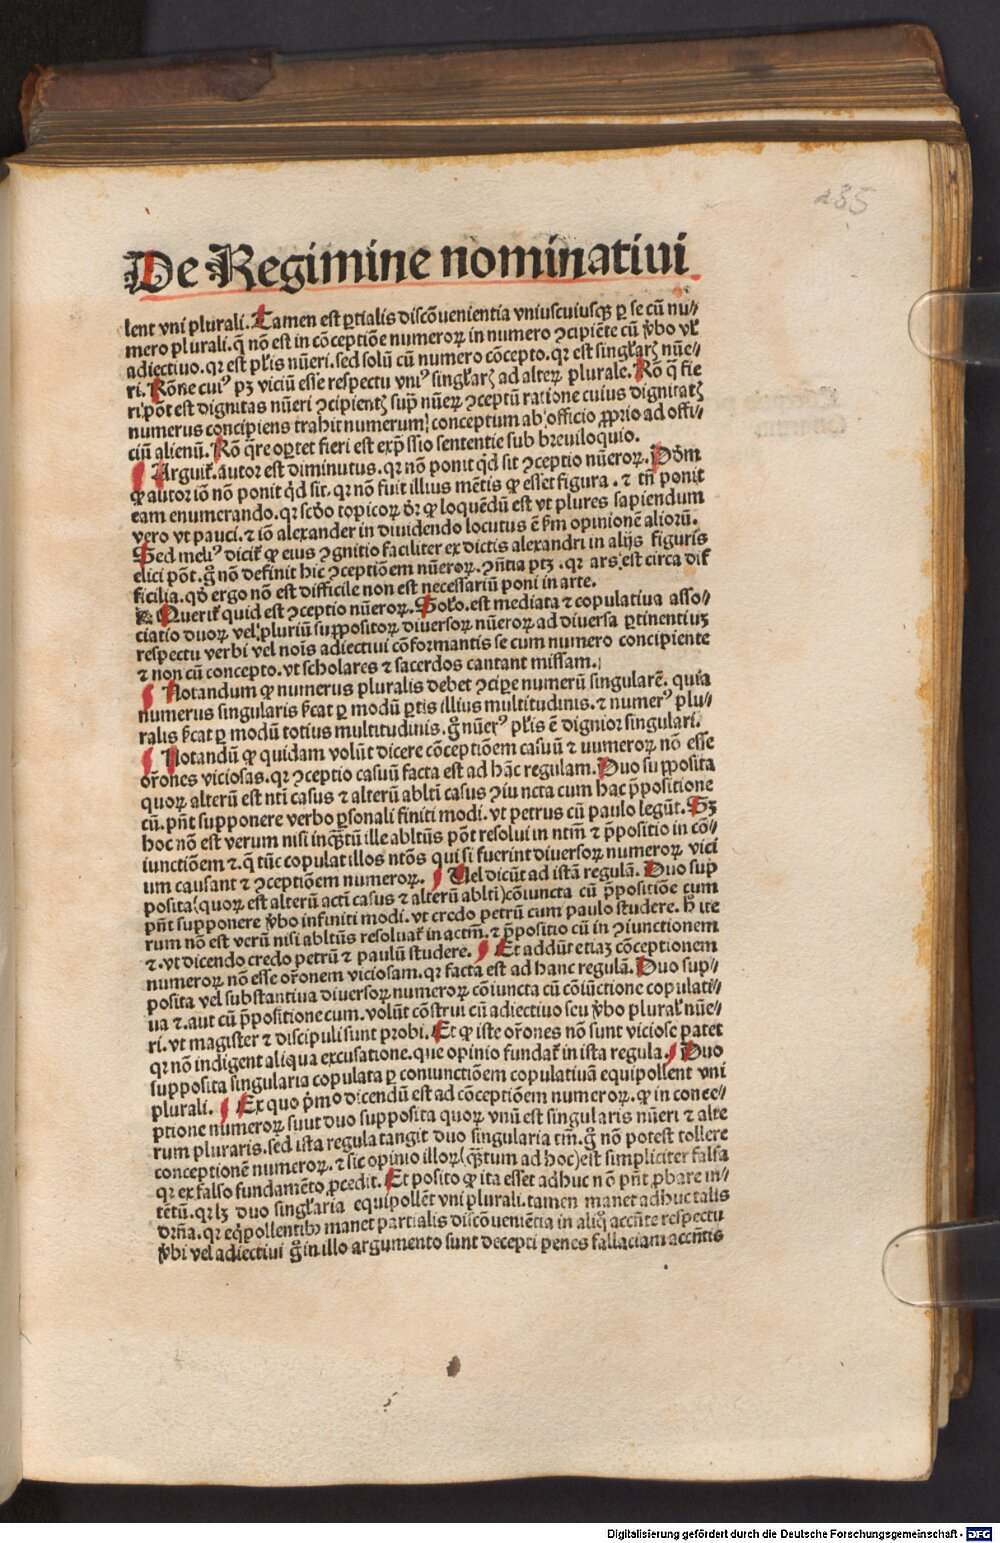 235
De Regimine nominatiui
lent vni plurali. Tamen est ꝑtialis discōuenientia vniuscuiusqꝫ ꝑ se cū nu⸗
mero plurali. q̄ nō est in cōceptiōe numeroꝝ in numero ꝯcipiēte cū ꝟbo vł
adiectiuo. qꝛ est pl̄is nūeri. sed solū cū numero cōcepto. qꝛ est singl̄arꝫ nūe⸗
ri. Rōne cuiꝰ pꝫ viciū esse respectu vniꝰ singl̄arꝫ ad alteꝝ plurale. Rō q̄ fie
ri pōt est dignitas nūeri ꝯcipientꝫ sup̄ nūeꝝ ꝯceptū ratione cuius dignitatꝫ
numerus concipiens trahit numerum conceptum ab officio ꝓprio ad offi⸗
ciū alienū. Rō q̄re oꝑtet fieri est exp̄ssio sententie sub breuiloquio.
Arguit̄. autor est diminutus. qꝛ nō ponit qͥd sit ꝯceptio nūeroꝝ. Dōm
ꝙ autor iō nō ponit qͥd sit. qꝛ nō fuit illius mētis ꝙ esset figura. ⁊ tn̄ ponit
eam enumerando. qꝛ scd̄o topicoꝝ dr̄ ꝙ loquēdū est vt plures sapiendum
vero vt pauci. ⁊ iō alexander in diuidendo locutus ē ẜm opinionē alioꝝ.
Sed meliꝰ dicit̄ ꝙ eius ꝯgnitio faciliter ex dictis alexandri in alijs figuris
elici pōt. g̊ nō definit hic ꝯceptiōem nūeroꝝ. ꝯn̄tia ptꝫ. qꝛ ars est circa dif
ficilia. qd̄ ergo nō est difficile non est necessariū poni in arte.
Querit̄ quid est ꝯceptio nūeroꝝ. Solō. est mediata ⁊ copulatiua asso⸗
ciatio duoꝝ vel pluriū suppositoꝝ diuersoꝝ nūeroꝝ ad diuersa ꝑtinentiuꝫ
respectu verbi vel nois adiectiui cōformantis se cum numero concipiente
⁊ non cū concepto. vt scholares ⁊ sacerdos cantant missam.
Notandum ꝙ numerus pluralis debet ꝯciꝑe numerū singularē. quia
numerus singularis ẜcat ꝑ modū ꝑtis illius multitudinis. ⁊ numerꝰ plu⸗
ralis ẜcat ꝑ modū totius multitudinis. g̊ nūerꝰ pl̄is ē dignior singulari.
Notandū ꝙ quidam volūt dicere cōceptiōem casuū ⁊ uumeroꝝ nō esse
or̄ones viciosas. qꝛ ꝯceptio casuū facta est ad hāc regulam. Duo supposita
quoꝝ alterū est nt̄i casus ⁊ alterū ablt̄i casus ꝯiuncta cum hac p̄positione
cū. pn̄t supponere verbo ꝑsonali finiti modi. vt petrus cū paulo legūt. Sꝫ
hoc nō est verum nisi inqꝫtū ille ablt̄us pōt resolui in nt̄m ⁊ p̄positio in cō⸗
iunctiōem ⁊. q̄ tūc copulat illos nt̄os qui si fuerint diuersoꝝ numeroꝝ vici
um causant ⁊ ꝯceptiōem numeroꝝ. Uel dicūt ad istā regulā. Duo sup
posita (quoꝝ est alterū act̄i casus ⁊ alterū ablt̄i) cōiuncta cū p̄positiōe cum
pn̄t supponere ꝟbo infiniti modi. vt credo petrū cum paulo studere. h̄ ite
rum nō est verū nisi ablt̄us resoluat̄ in act̄m. ⁊ p̄positio cū in ꝯiunctionem
⁊. vt dicendo credo petrū ⁊ paulū studere. Et addūt etiaꝫ cōceptionem
numeroꝝ nō esse or̄onem viciosam. qꝛ facta est ad hanc regulā. Duo sup⸗
posita vel substantiua diuersoꝝ numeroꝝ cōiuncta cū cōiūctione copulati⸗
ua ⁊. aut cū p̄positione cum. volūt cōstrui cū adiectiuo seu ꝟbo plural̄ nūe⸗
ri. vt magister ⁊ discipuli sunt probi. Et ꝙ iste or̄ones nō sunt viciose patet
qꝛ nō indigent aliqua excusatione. que opinio fundat̄ in ista regula. Duo
supposita singularia copulata ꝑ coniunctiōem copulatiuā equipollent vni
plurali. Ex quo p̄mo dicendū est ad cōceptiōem numeroꝝ. ꝙ in conce⸗
ptione numeroꝝ suut duo supposita quoꝝ vnū est singularis nūeri ⁊ alte
rum pluraris. sed ista regula tangit duo singularia tm̄. g̊ nō potest tollere
conceptionē numeroꝝ. ⁊ sic opinio illoꝝ (qꝫtum ad hoc) est simpliciter falsa
qꝛ ex falso fundamēto ꝓcedit. Et posito ꝙ ita esset adhuc nō pn̄t ꝓbare in⸗
tētū. qꝛ lꝫ duo singl̄aria equipollēt vni plurali. tamen manet adhuc talis
drn̄a. qꝛ eq̄pollentibꝫ manet partialis discōueniētia in aliq̊ accn̄te respectu
ꝟbi vel adiectiui g̊ in illo argumento sunt decepti penes fallaciam accn̄tis
Digitalisierung gefördert durch die Deutsche Forschungsgemeinschaft - DFG